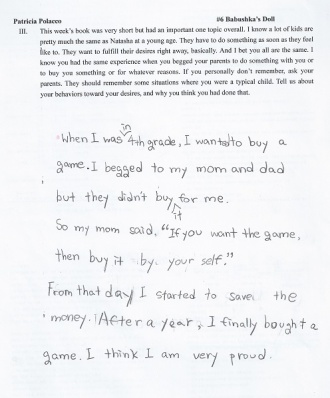 Patricia Polacco #6 Babushka's Doll
III. This week's book was very short but had an important one topic overall. I know a lot of kids are
pretty much the same as Natasha at a young age. They have to do something as soon as they feel
like to. They want to fulfill their desires right away, basically. And I bet you all are the same. I
know you had the same experience when you begged your parents to do something with you or
to buy you something or for whatever reasons. If you personally don't remember, ask your
parents. They should remember some situations where you were a typical child. Tell us about
your behaviors toward your desires, and why you think you had done that.
When I was in 4th grade, I wanted to buy a
game. I begged to my mom and dad
but they didn't buy it for me.
So my mom said, "If you want the game,
then buy it by your self."
From that day I started to save the
money. After a year, I finally bought a
game. I think I am very proud.